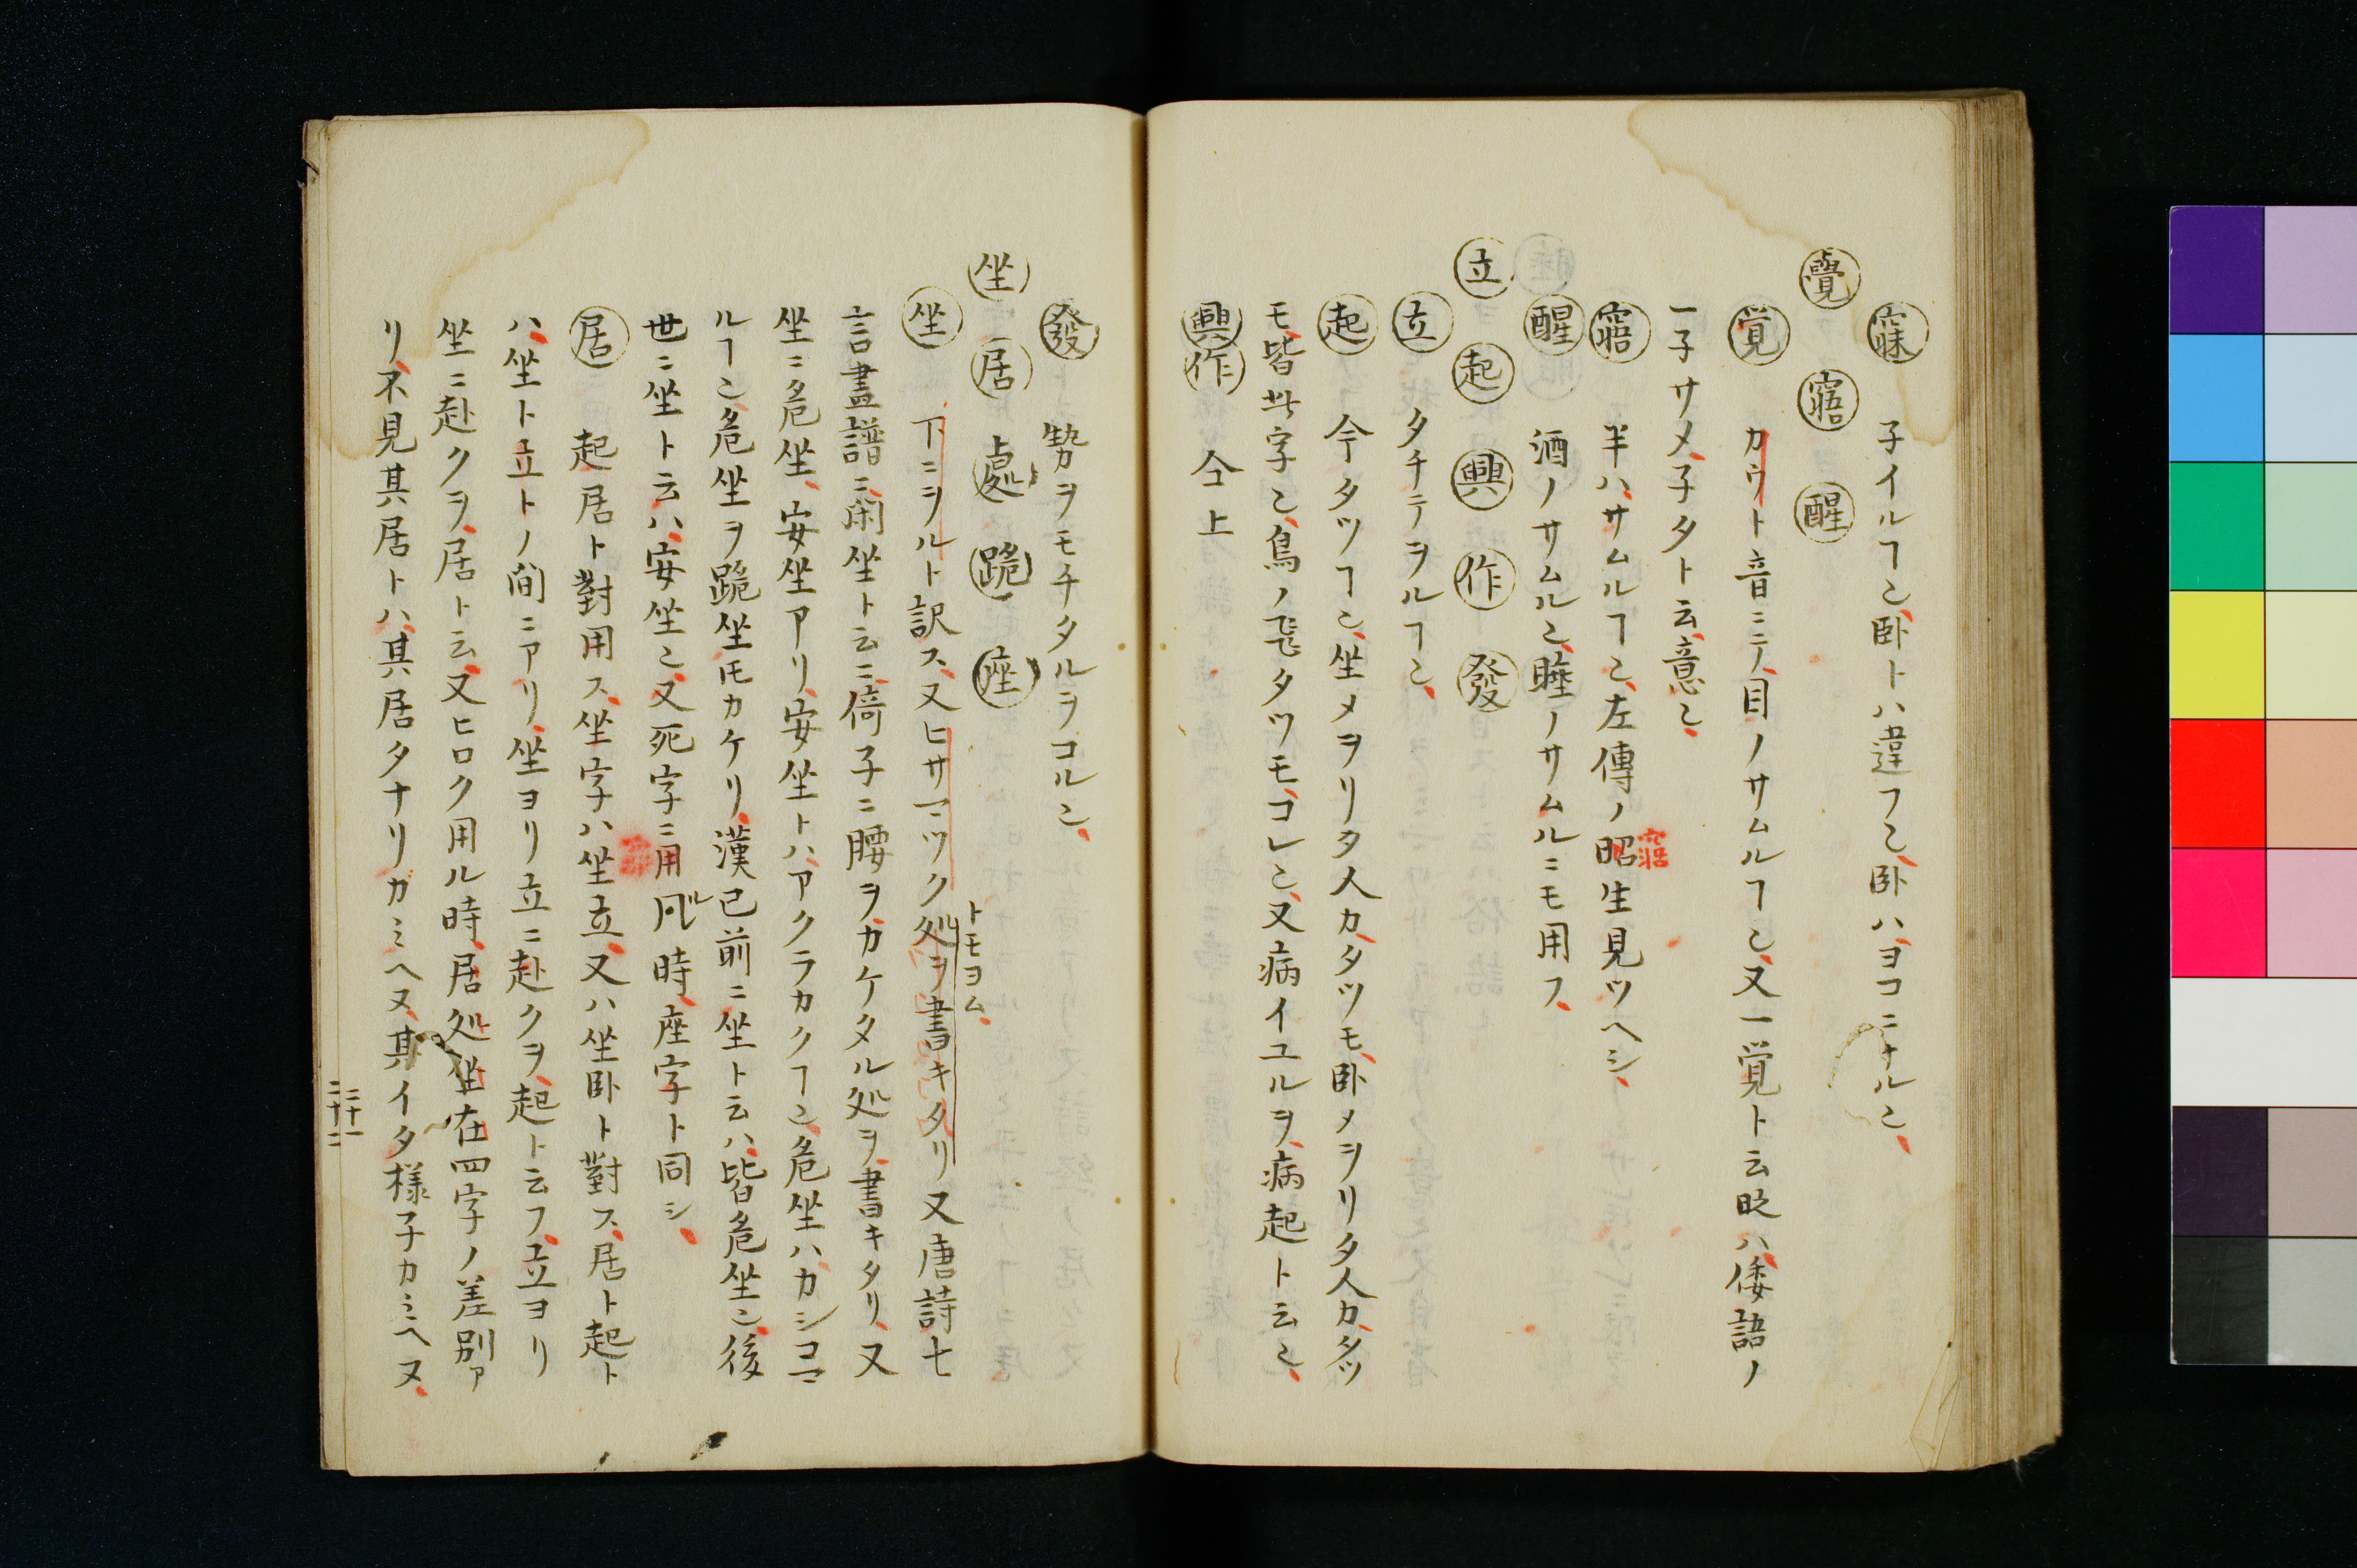 寐 子イルヿ也臥トハ違フ也臥ハヨコニナル也
覺 寤 醒
覚 カウト音ニテ目ノサムルヿ也又一覚ト云時ハ倭語ノ
一子サメ子タト云意也
寤 半ハサムルヿ也左傳ノ昭生見ツヘシ
寤
醒 酒ノサムル也睡ノサムルニモ用フ
立 起 興 作 發
立 タチテヲルヿ也
起 今タツヿ也坐メヲリタ人カタツモ臥メヲリタ人カタツ
モ皆此字也鳥ノ飛タツモコレ也又病イユルヲ病起ト云也
興作 仝上
發 勢ヲモチタルヲコル也
坐 居 處 跪 座
トモヨム
坐 下ニヲルト訳ス又ヒサマツク処ヲ書キタリ又唐詩七
言畫譜ニ閑坐ト云ニ倚子ニ腰ヲカケタル処ヲ書キタリ又
坐ニ危坐安坐アリ安坐トハアクラカクヿ也危坐ハカシコマ
ルヿ也危坐ヲ跪坐トモカケリ漢已前ニ坐ト云ハ皆危坐也後
世ニ坐ト云ハ安坐也又死字ニ用ル時座字ト同シ
居 起居ト對用ス坐字ハ坐立又ハ坐臥ト對ス居ト起ト
ハ坐ト立トノ間ニアリ坐ヨリ立ニ赴クヲ起ト云フ立ヨリ
坐ニ赴クヲ居ト云又ヒロク用ル時居処坐在四字ノ差別ア
リ不見其居トハ其居タナリカミヘヌ其イタ様子カミヘヌ
二十一
二十二